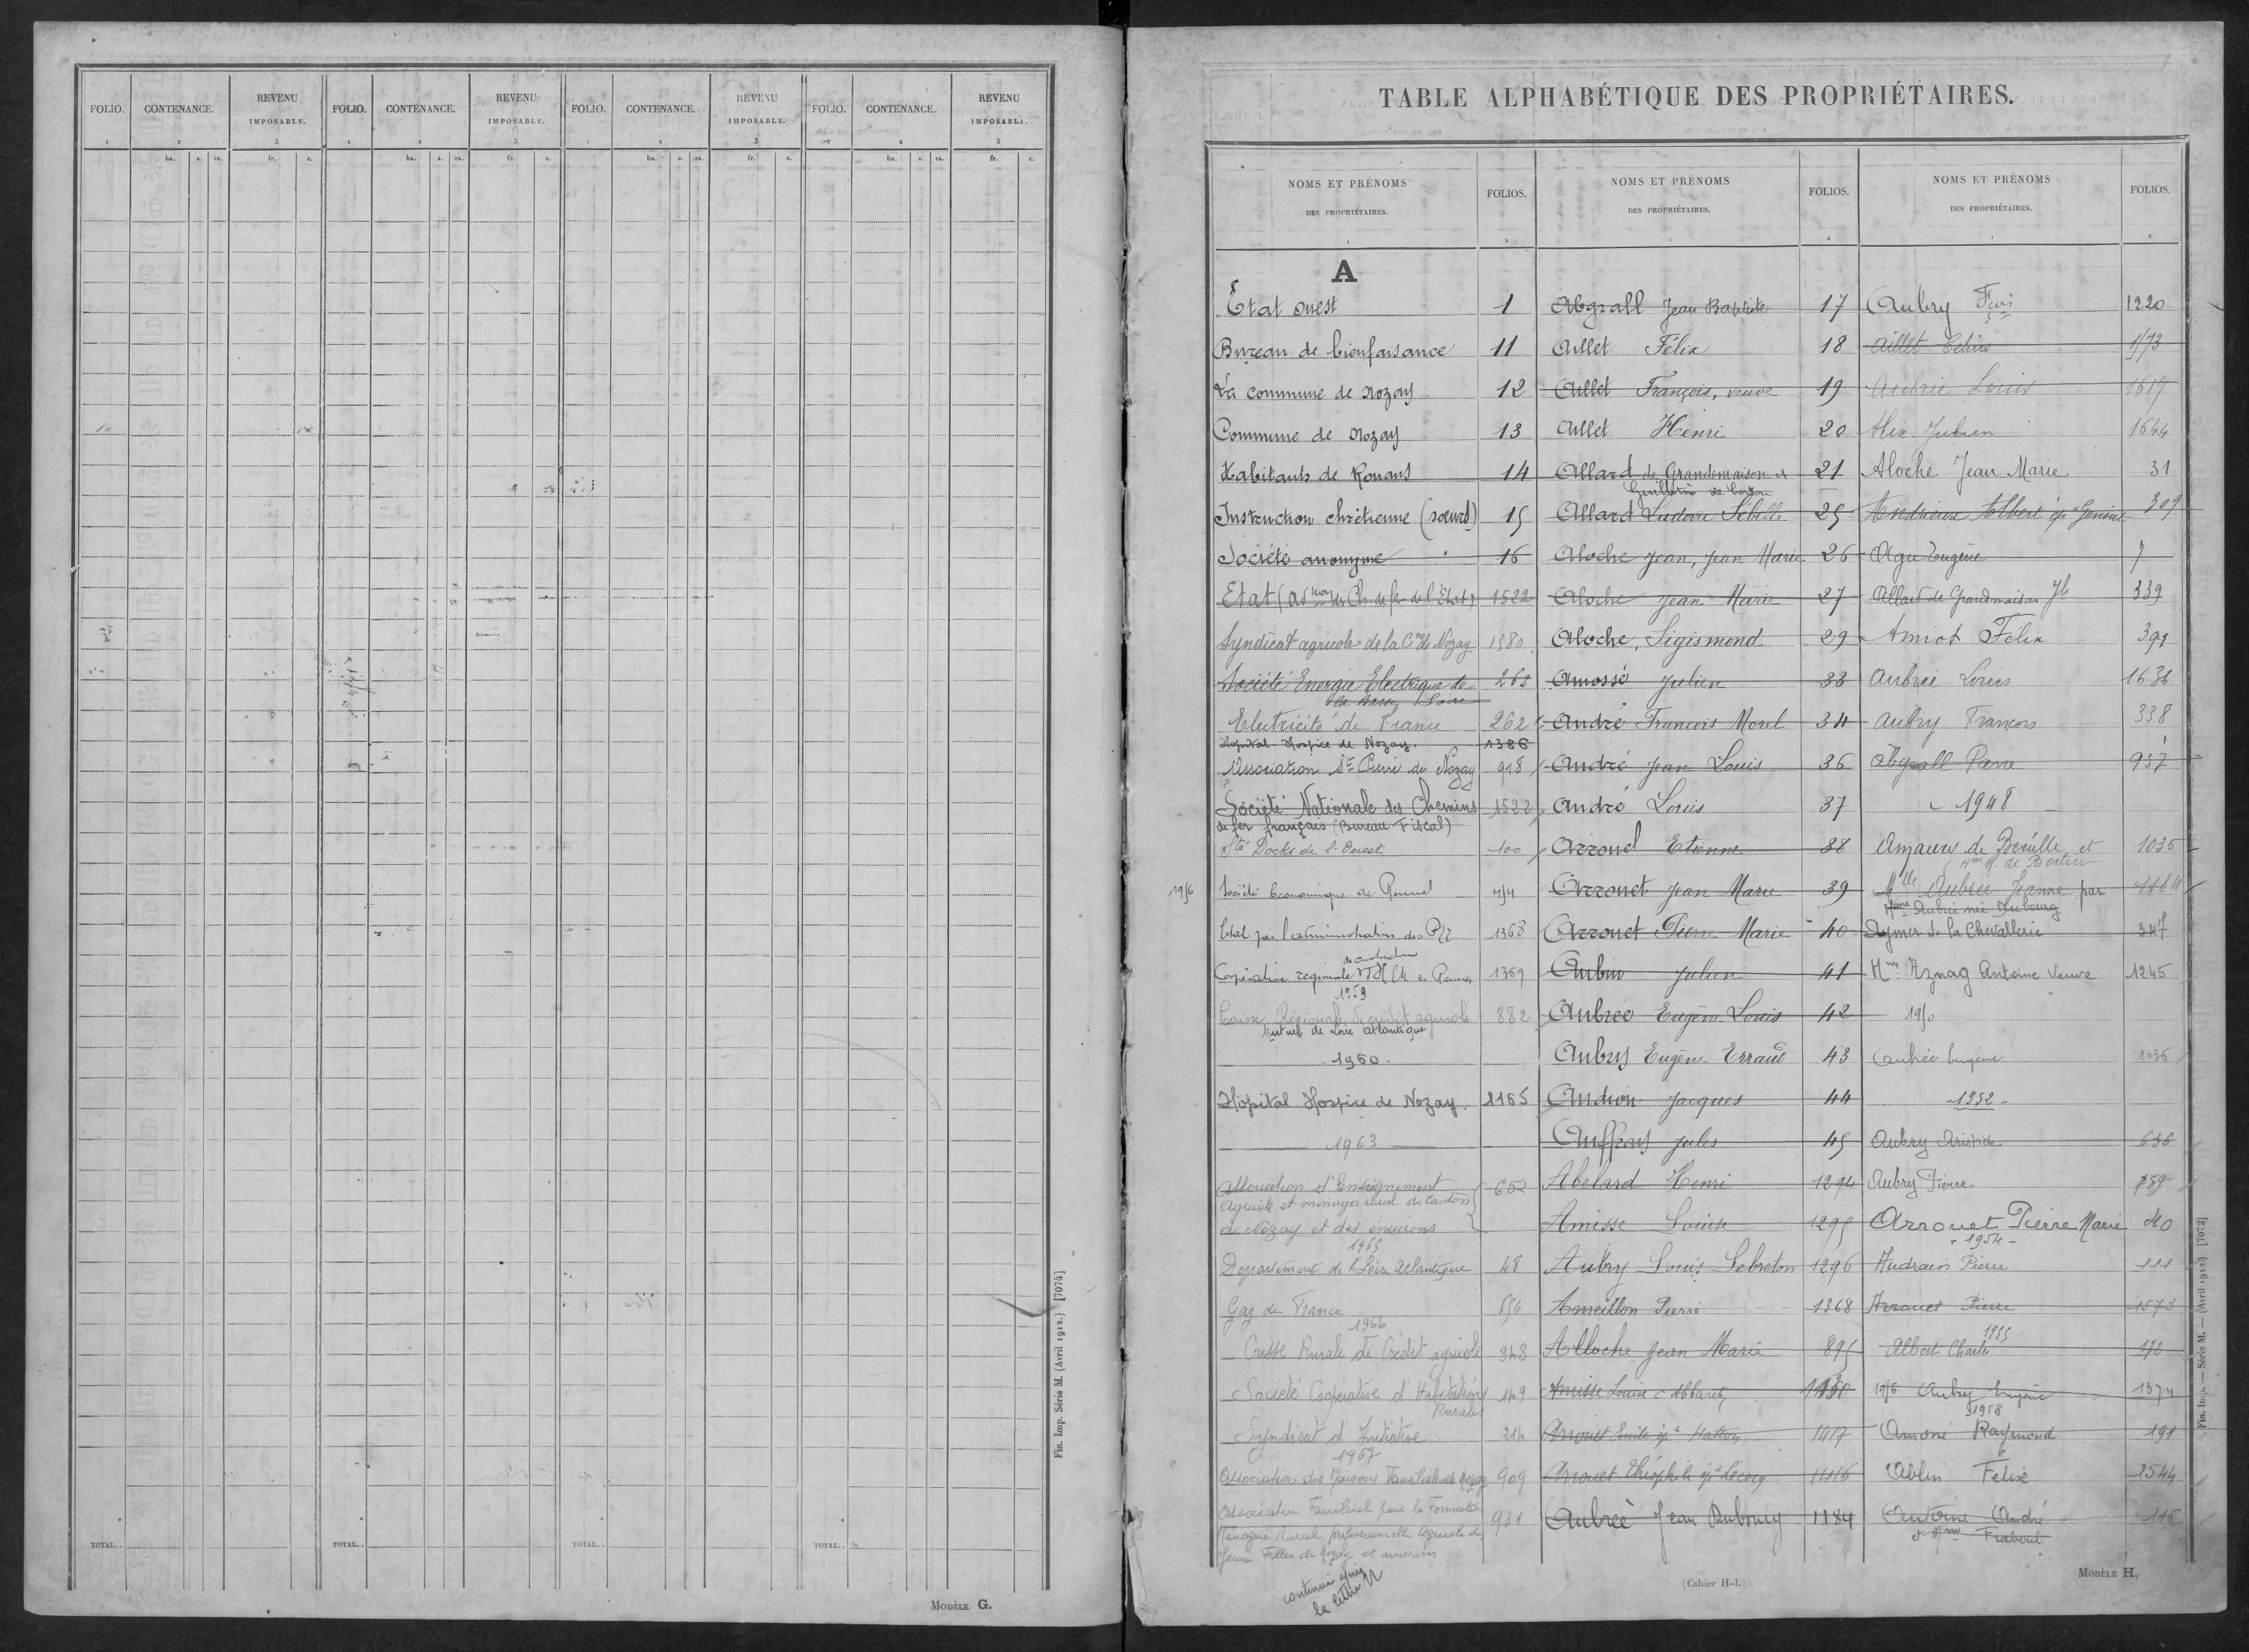 FOLIO. CONTENANCE. REVENU IMPOSABLE. FOLIO. CONTENANCE. REVENU IMPOSABLE. FOLIO. CONTENANCE. REVENU IMPOSABLE. FOLIO. CONTENANCE. REVENU IMPOSABLE.
1 2 3 1 2 3 1 2 3 1 2 3
ha. a. ca. fr. c. ha. a. ca. fr. c. ha. a. ca. fr. c. ha. a. ca. fr. c.
TOTAL.. TOTAL.. TOTAL.. TOTAL..
Fin. Imp. Série M. (Avril 1912.) [7074]
MODÈLE G.
TABLE ALPHABÉTIQUE DES PROPRIÉTAIRES.
NOMS ET PRÉNOMS
DES PROPRIÉTAIRES.
FOLIOS.
1 2
A
Etat ouest 1
Bureau de bienfaisance 11
La commune de Nozay 12
Commune de Nozay 13
Habitants de Rouans 14
Instruction chrétienne (soeurs) 15
Société anonyme 16
Etat (Adon des Ch. de fer de l'Etat) 1522
Syndicat agricole de la Cne de Nozay 1580
Société Energie Electrique de 262
la Basse Loire
Electricité de France 262
Hopital-Hospice de Nozay. 1386
Association St Pierre de Nozay 918
Société Nationale des Chemins 1522
de fer français (Bureau Fiscal)
Sté Docks de l'Ouest 100
1956 Société Economique de Rennes
Etat par l'administration des PTT 1368
Coopérative régionale 1369
1959
Caisse Régionale de crédit agricole 882
Mutuel de Loire Atlantique
1960.
Hôpital Hospice de Nozay. 1165
1963
Association d'Enseignement 652
Agricole et ménager rural du canton
de Nozay et des environs
1965
Département de la Loire Atlantique 48
Gaz de France 654
1966
Caisse Rurale de Crédit agricole 343
Société Coopérative d'Habitations 149
Rurales
Syndicat d'Initiative 214
1967
Association des Maisons Familiales de Nozay 909
Association Familiale pour la Formation 931
Ménagère Rurale professionnelle agricole des
Jeunes Filles de Nozay et environs
continué après
la lettre
NOMS ET PRÉNOMS
DES PROPRIÉTAIRES.
FOLIOS.
1 2
Abgrall Jean Baptiste 17
Aillet Félix 18
Aillet François, veuve 19
Aillet Henri 20
Allard de Grandmaison et 21
Allard Ludovic Sébille 25
Aloche Jean, Jean Marie 26
Aloche Jean Marie 27
Aloche, Sigismond 29
Amossé Julien 33
André François Morel 34
André Jean Louis 36
André Louis 37
Arrouet Etienne 38
Arrouet Jean Marie 39
Arrouet Pierre Marie 40
Aubin Julien 41
Aubrée Eugène Louis 42
Aubry Eugène Erraud 43
Audion Jacques 44
Auffray Jules 45
Abélard Henri 1294
Amisse Louise 1295
Aubry Louis Lebreton 1296
Ameillon Pierre 1368
Alloche Jean Marie 895
Amisse Louise à Abbaretz 1130
Arrouet Emile 1417
Arrouet Théophile épx Lecoq 1116
Aubrée Jean Dubourg 1184
(Cahier H-I.)
NOMS ET PRÉNOMS
DES PROPRIÉTAIRES.
FOLIOS.
1 2
Aubry Fçois 1220
Aillet Céline 1173
Aubrée Louis 1619
Alix Julien 1644
Aloche Jean Marie 31
Andrieux Albert 309
Agu Eugène 7
Allard de Grandmaison 339
Amiot Félix 391
Aubrée Louis 1636
Aubry François 338
Abgrall Pierre 937
1948
de Bréville et 1035
Mlle Aubrée Jeanne par 1164
Mme Aubrée née Dubourg
Aymer de la Chevallerie 347
Mme Aznag Antoine Veuve 1245
1950
Aubrée Eugène 1036
1952
Aubry Aristide 636
Aubry Pierre 759
Arrouet Pierre Marie 40
1954
Audrain Pierre 111
Arrouet Pierre 1573
1955
Albert Charles 172
1956 Aubry Eugène 1374
1958
Raymond 191
Ablin Félix 1544
Antoine André 116
et Mme
MODÈLE H.
Fin. Imp. — Série M. — (Avril 1912.) [7072]